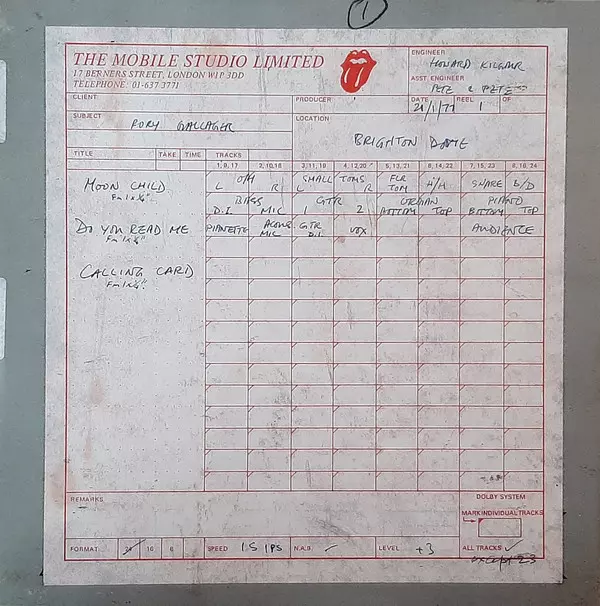 1
THE MOBILE STUDIO LIMITED
17 BERNERS STREET, LONDON W1P 3DD
TELEPHONE: 01-637 3771
ENGINEER
HOWARD KILGOUR
ASST. ENGINEER
PETE & PETE
CLIENT
PRODUCER
DATE 21/1/77 REEL 1 OF
SUBJECT
RORY GALLAGER
LOCATION
BRIGHTON DOME
TITLE TAKE TIME TRACKS
1, 9, 17 2, 10, 18 3, 11, 19 4, 12, 20 5, 13, 21 6, 14, 22 7, 15, 23 8, 16, 24
MOON CHILD O/H L R SMALL TOMS L R FLR TOM H/H SNARE B/D
Fm 1 x ¼" BASS D.I. MIC GTR 1 2 ORGAN BOTTOM TOP PIANO BOTTOM TOP
DO YOU READ ME PIANETTE ACOUS MIC GTR D.I. VOX AUDIENCE
Fm 1 x ¼"
CALLING CARD
Fm 1 x ¼"
REMARKS
DOLBY SYSTEM
MARK INDIVIDUAL TRACKS
FORMAT 24 16 8 SPEED 15 IPS N.A.B. ✓ LEVEL +3 ALL TRACKS ✓
EXCEPT 23